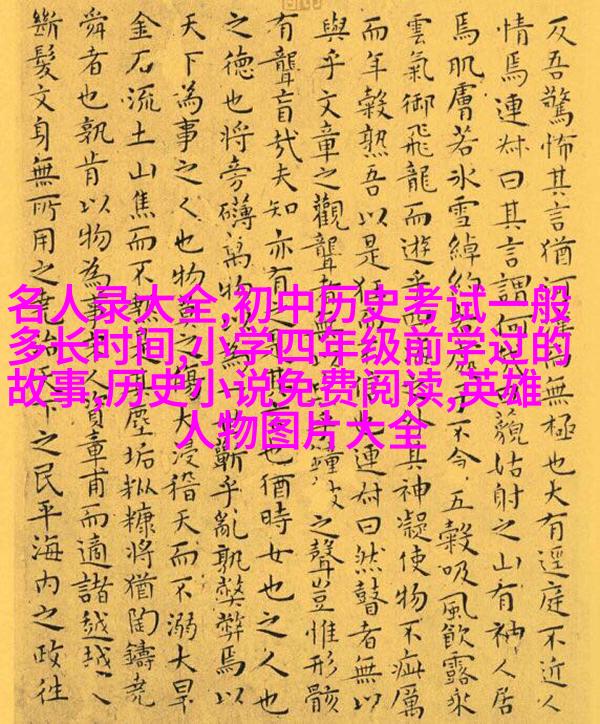 名人录大全,初中历史考试一般
多长时间,小学四年级前学过的
故事,历史小说免费阅读,英雄
人物图片大全
反吾驚怖其言猶河無極也大有逕庭不近人
情焉連叔曰其言謂何藐姑射之山有神人居
焉肌膚若冰雪綽約不食五穀吸風飲露乘
雲氣御飛龍而遊乎四其神凝使物不疵厲
而年穀熟吾以是狂而也連叔曰然瞽者無以
與乎文章之觀聾者無鐘鼓之聲豈惟形骸
有聾盲哉夫知亦有之是其也猶時女也之人也
之德也將旁礴萬物以為世蘄乎亂孰弊弊焉以
天下為事之人也物莫之傷大浸稽天而不溺大旱
金石流土山焦而不熱是其塵垢粃糠將猶陶鑄堯
舜者也孰肯以物為事人資章甫而適諸越越人
斷髮文身無所用之堯治天下之民平海內之政往